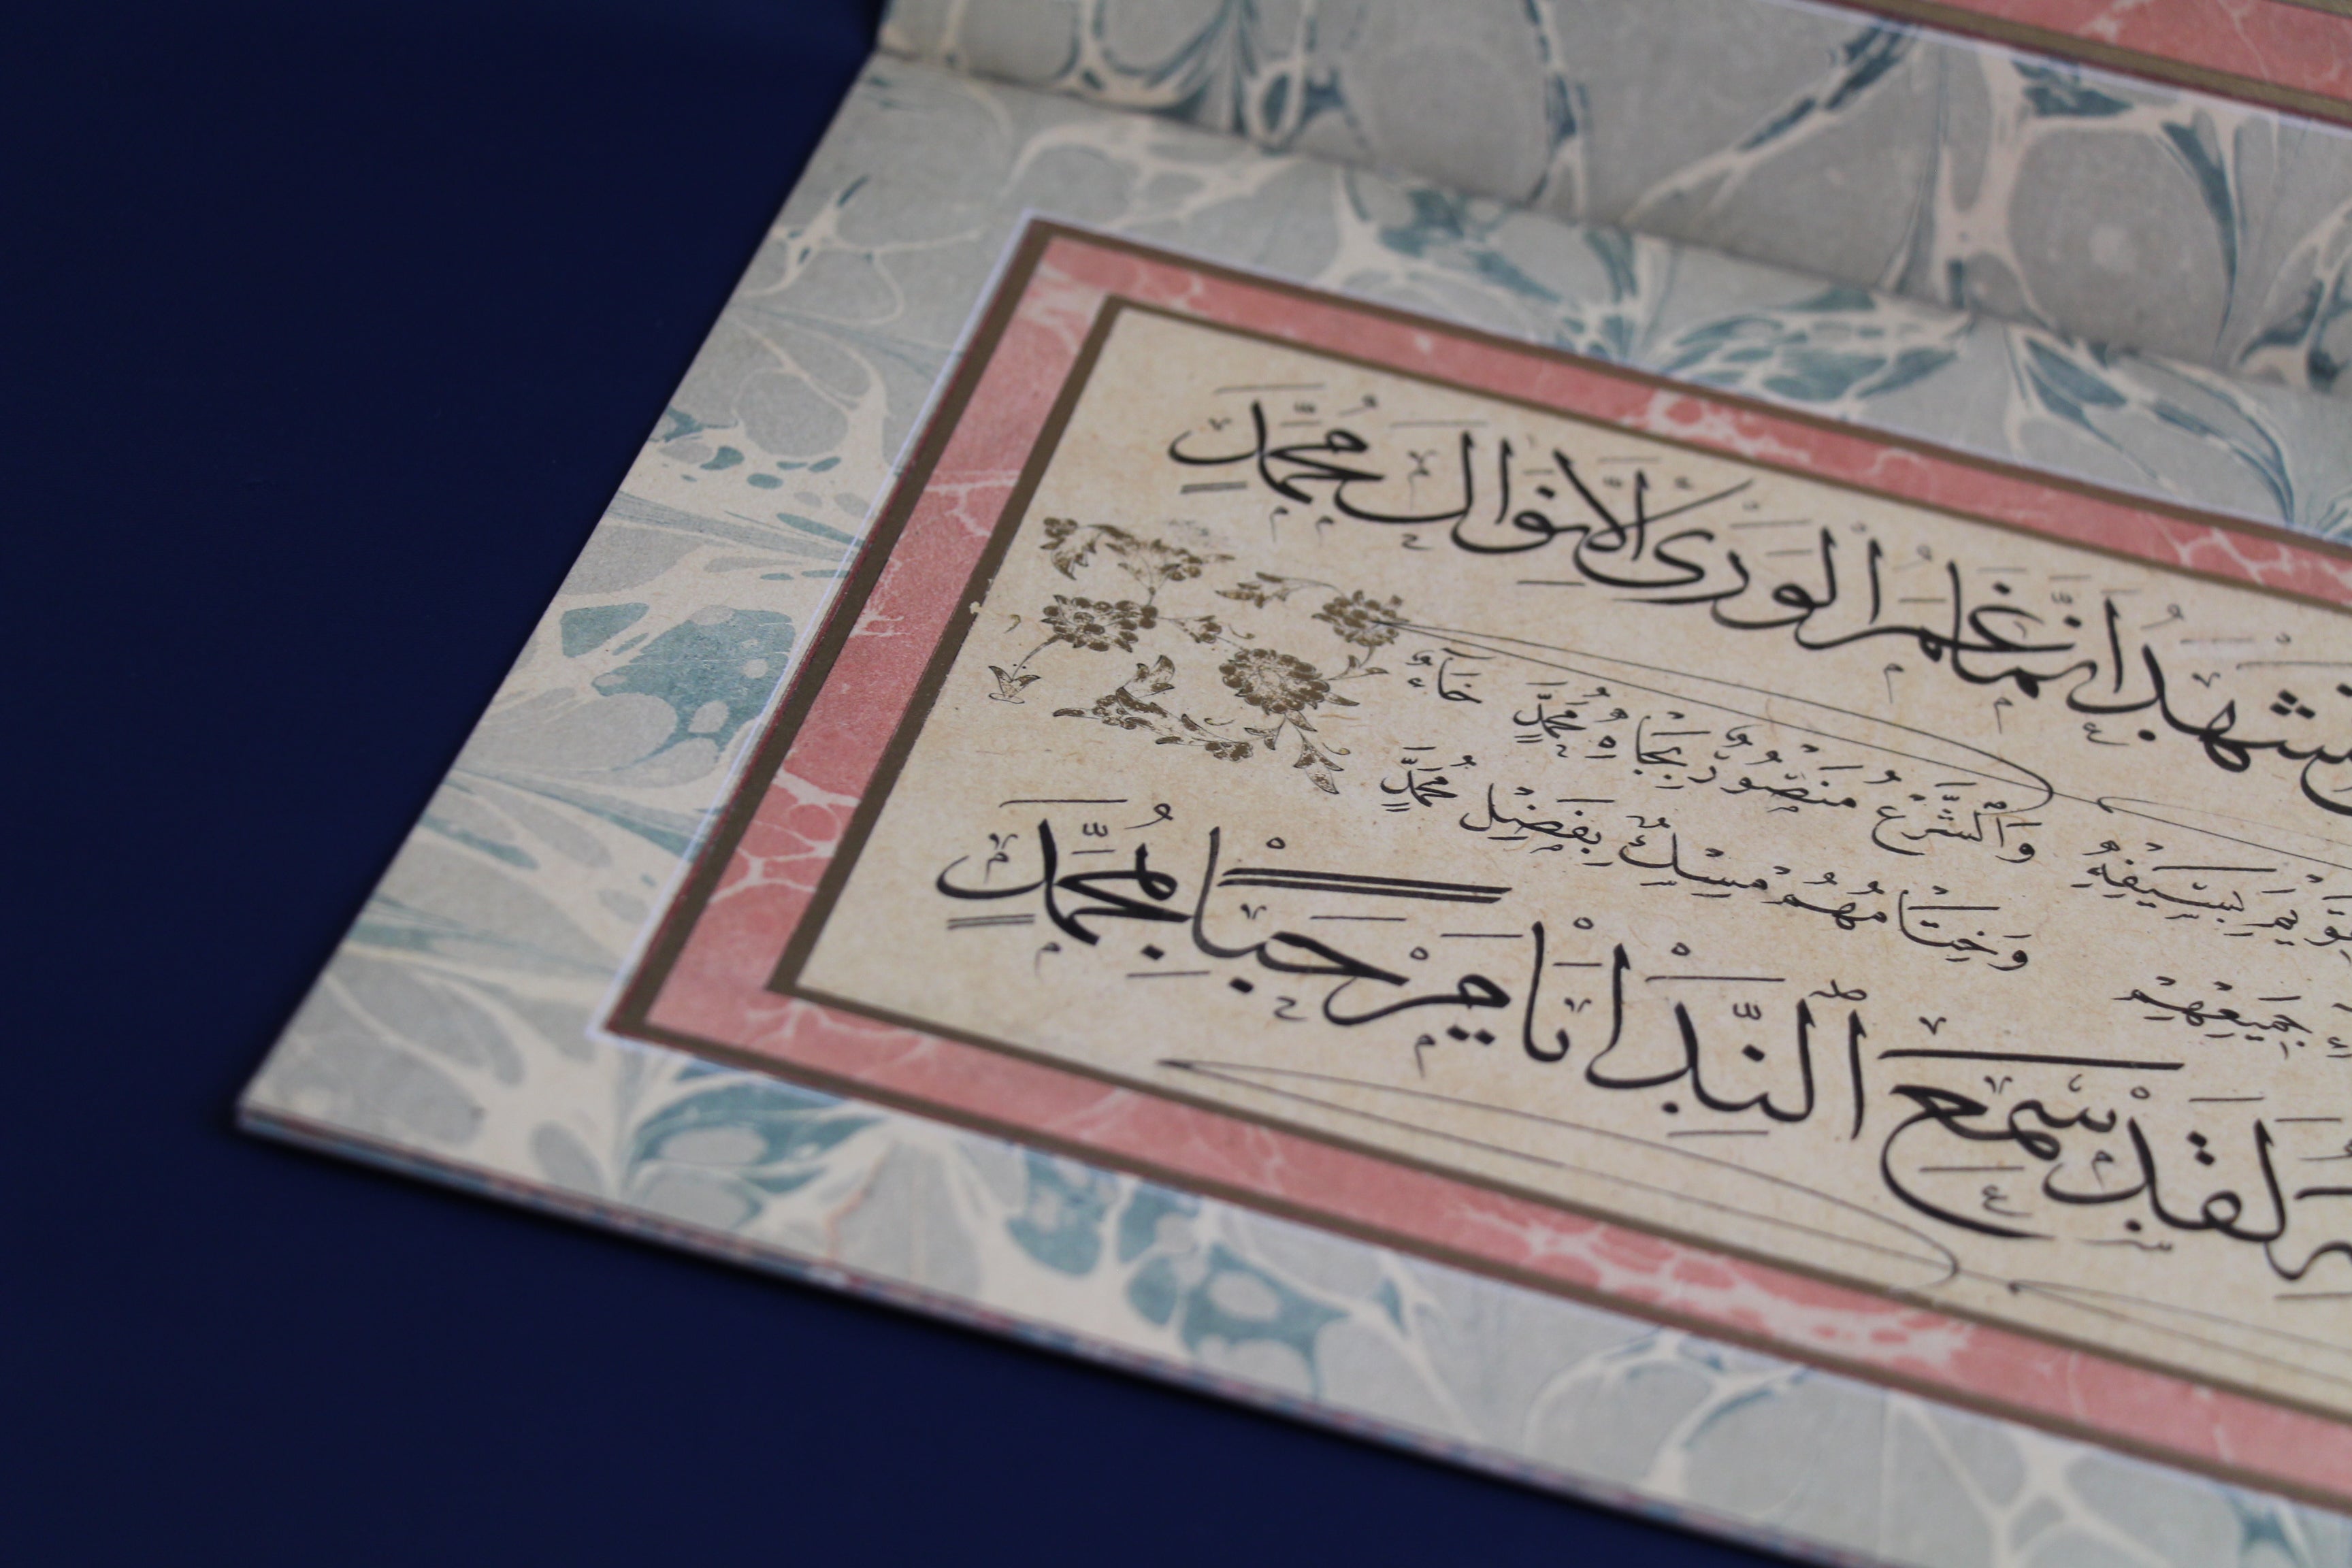 شْهَدُ اَنَّ مَا غَمَرَ الْوَرَى اِلَّا نَوَالُ مُحَمَّدٍ
بِسَيْفِهِ وَالشَّرْعُ مَنْصُورٌ بِجَاهِ مُحَمَّدٍ
جَمِيعِهِمْ وَخِتَامُهُمْ مِسْكٌ بِفَضْلِ مُحَمَّدٍ
لَقَدْ سَمِعَ النِّدَا يَا مَرْحَبًا بِمُحَمَّدٍ